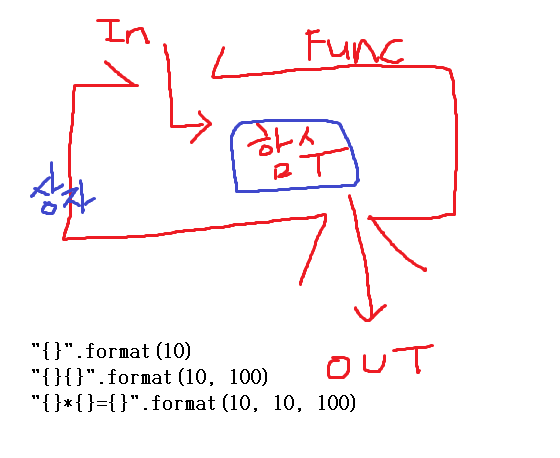 In
Func
함수
상자
OUT
"{}".format(10)
"{}{}".format(10, 100)
"{}*{}={}".format(10, 10, 100)